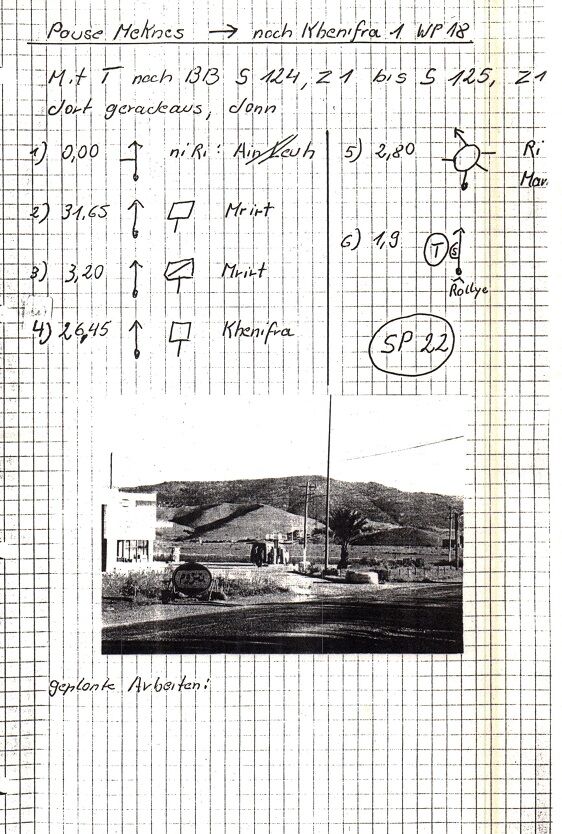 Pause Meknes → nach Khenifra 1 WP 18
Mit T nach BB S 124, Z 1 bis S 125, Z 1
dort geradeaus, dann
1) 0,00 niRi: Ain Leuh
2) 31,65 Mrirt
3) 3,20 Mrirt
4) 26,45 Khenifra
5) 2,80 Ri
Mar.
6) 1,9 T S
Rallye
SP 22
geplante Arbeiten: